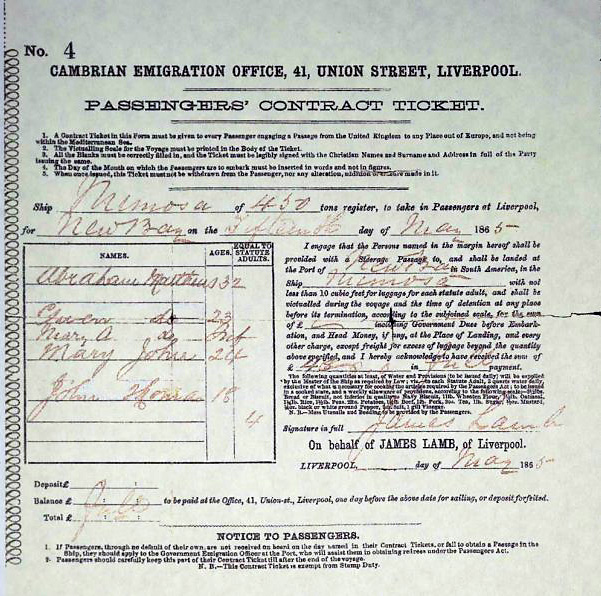 No. 4
CAMBRIAN EMIGRATION OFFICE, 41, UNION STREET, LIVERPOOL.
PASSENGERS' CONTRACT TICKET.
1. A Contract Ticket in this Form must be given to every Passenger engaging a Passage from the United Kingdom to any Place out of Europe, and not being
within the Mediterranean Sea.
2. The Victualling Scale for the Voyage must be printed in the Body of the Ticket.
3. All the Blanks must be correctly filled in, and the Ticket must be legibly signed with the Christian Names and Surname and Address in full of the Party
issuing the same.
4. The Day of the Month on which the Passengers are to embark must be inserted in words and not in figures.
5. When once issued, this Ticket must not be withdrawn from the Passenger, nor any alteration, addition or erasure made in it.
Ship Mimosa of 450 tons register, to take in Passengers at Liverpool,
for New Bay on the Fifteenth day of May 1865
NAMES. AGES. EQUAL TO STATUTE ADULTS.
Abraham Matthews 32
Gwen do 23
Mary A do Inf
Mary Jones 24
John 18
4
I engage that the Persons named in the margin hereof shall be
provided with a Steerage Passage to, and shall be landed
at the Port of New Bay in South America, in the
Ship Mimosa with not
less than 10 cubic feet for luggage for each statute adult, and shall be
victualled during the voyage and the time of detention at any place
before its termination, according to the subjoined scale, for the sum
of £ including Government Dues before Embarkation,
and Head Money, if any, at the Place of Landing, and every
other charge, except freight for excess of luggage beyond the quantity
above specified, and I hereby acknowledge to have received the sum of
£ in Full payment.
The following quantities, at least, of Water and Provisions (to be issued daily) will be supplied
by the Master of the Ship as required by Law; viz.
N.B. Mess Utensils and Bedding to be provided by the Passengers.
Signature in full James Lamb
On behalf of JAMES LAMB, of Liverpool.
LIVERPOOL, day of May 1865
Deposit £
Balance £ to be paid at the Office, 41, Union-st., Liverpool, one day before the above date for sailing, or deposit forfeited.
Total £
NOTICE TO PASSENGERS.
1. If Passengers, through no default of their own, are not received on board on the day named in their Contract Tickets, or fail to obtain a Passage in the
Ship, they should apply to the Government Emigration Officer at the Port, who will assist them in obtaining redress under the Passengers Act.
2. Passengers should carefully keep this part of their Contract Ticket till after the end of the voyage.
N. B.—This Contract Ticket is exempt from Stamp Duty.